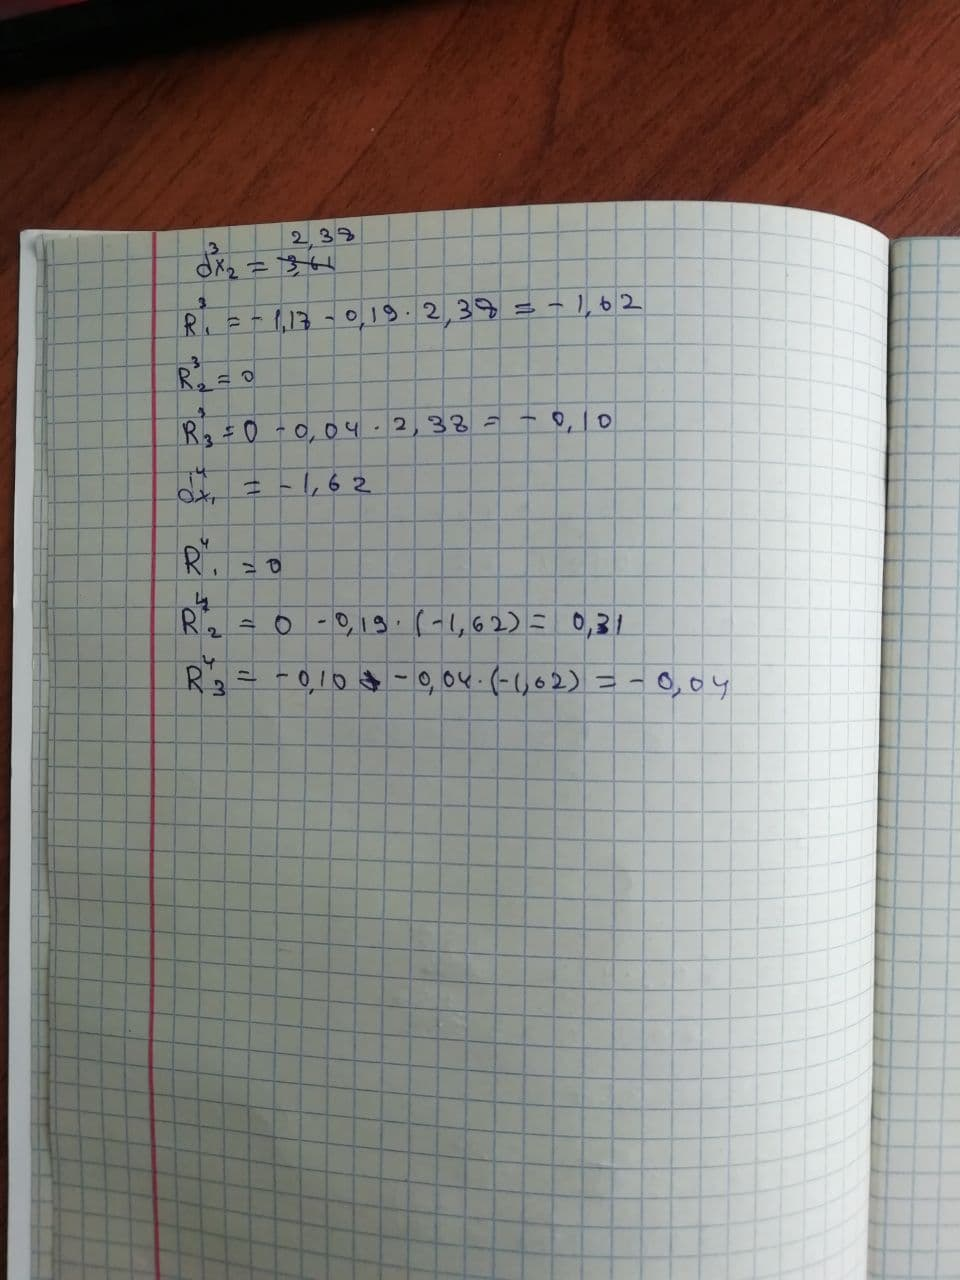 dx₂³ = 2,38
R₁³ = - 1,17 - 0,19 · 2,38 = - 1,62
R₂³ = 0
R₃³ = 0 - 0,04 · 2,38 = - 0,10
dx₁⁴ = - 1,62
R₁⁴ = 0
R₂⁴ = 0 - 0,19 · (-1,62) = 0,31
R₃⁴ = - 0,10 - 0,04 · (-1,62) = - 0,04